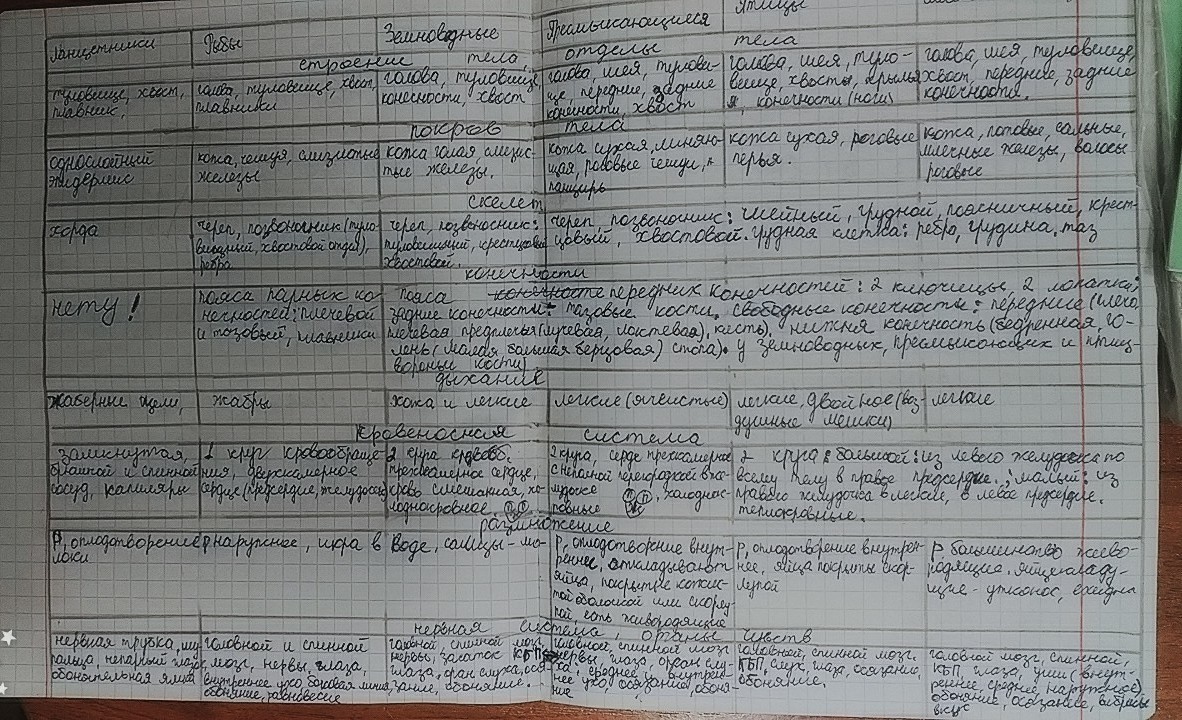 Ланцетники Рыбы Земноводные Пресмыкающиеся птицы
строение тела, отделы тела
туловище, хвост, плавник,
голова, туловище, хвост, плавники
голова, туловище, конечности, хвост
голова, шея, тулови-
ще, передние, задние
конечности, хвост
голова, шея, туло-
вище, хвосты, крылья
я, конечности (ноги)
голова, шея, туловище,
хвост, передние, задние
конечности.
покров тела
однослойный
эпидермис
кожа, чешуя, слизистые
железы
кожа голая, слизис-
тые железы.
кожа сухая, линяю-
щая, роговые чешуи,
панцирь
кожа сухая, роговые
перья.
кожа, потовые, сальные,
млечные железы, волосы
роговые
скелет
хорда
череп, позвоночник (туло-
вищный, хвостовой отдел),
ребра
череп, позвоночник:
туловищный, крестцовый
хвостовой.
череп, позвоночник: шейный, грудной, поясничный, крест-
цовый, хвостовой. грудная клетка: ребро, грудина, таз
конечности
нету!
пояса парных ко-
нечностей: плечевой
и тазовый, плавники
пояса конечносте передних конечностей: 2 ключицы, 2 лопатки;
задние конечности: тазовые кости. свободные конечности: передние (плечо
плечевая предплечья (лучевая, локтевая), кисть). нижняя конечность (бедренная, го-
лень (малая большая берцовая) стопа). у земноводных, пресмыкающих и птиц-
вороньи кости)
дыхание
жаберные щели,
жабры
кожа и легкие
легкие (ячеистые)
легкие, двойное (воз-
душные мешки)
легкие
кровеносная система
замкнутая,
брюшной и спинной
сосуд, капиляры
1 круг кровообраще-
ния, двухкамерное
сердце (предсердие, желудочек)
2 круга кровооб.
трехкамерное сердце,
кровь смешанная, хо-
лоднокровное.
2 круга, серде трехкамерное
с неполной перегородкой в же-
лудочке
холоднок-
ровные
2 круга: большой: из левого желудочка по
всему телу в правое предсердие.; малый: из
правого желудочка в легкие, в левое предсердие.
теплокровные.
размножение
Р, оплодотворение наружное, икра в воде, самцы - мо-
локи
Р, оплодотворение внут-
реннее, откладывают
яйца, покрытые кожис-
той оболочкой или скорлу-
пой есть живородящие
Р, оплодотворение внутрен-
нее, яйца покрыты скор-
лупой
Р большинство живо-
родящие. яйцекладу-
щие - утконос, ехидна
нервная система, органы чувств
нервная трубка, щу
пальца, непарный глазок
обонятельная ямка
головной и спинной
мозг, нервы, глаза,
внутреннее ухо боковая линия
обоняние, равновесие
головной, спинной мозг
нервы, зачаток КБП
глаза, орган слуха, ося-
зание, обоняние.
головной, спинной мозг
нервы, глаза, орган слу-
ха, среднее, внутрен-
нее ухо, осязание, обоня-
ние
головной, спинной мозг.
КБП, слух, глаза, осязание,
обоняние.
головной мозг, спинной,
КБП, глаза, уши (внут-
реннее, среднее, наружное)
обоняние, осязание, вибриссы
вкус